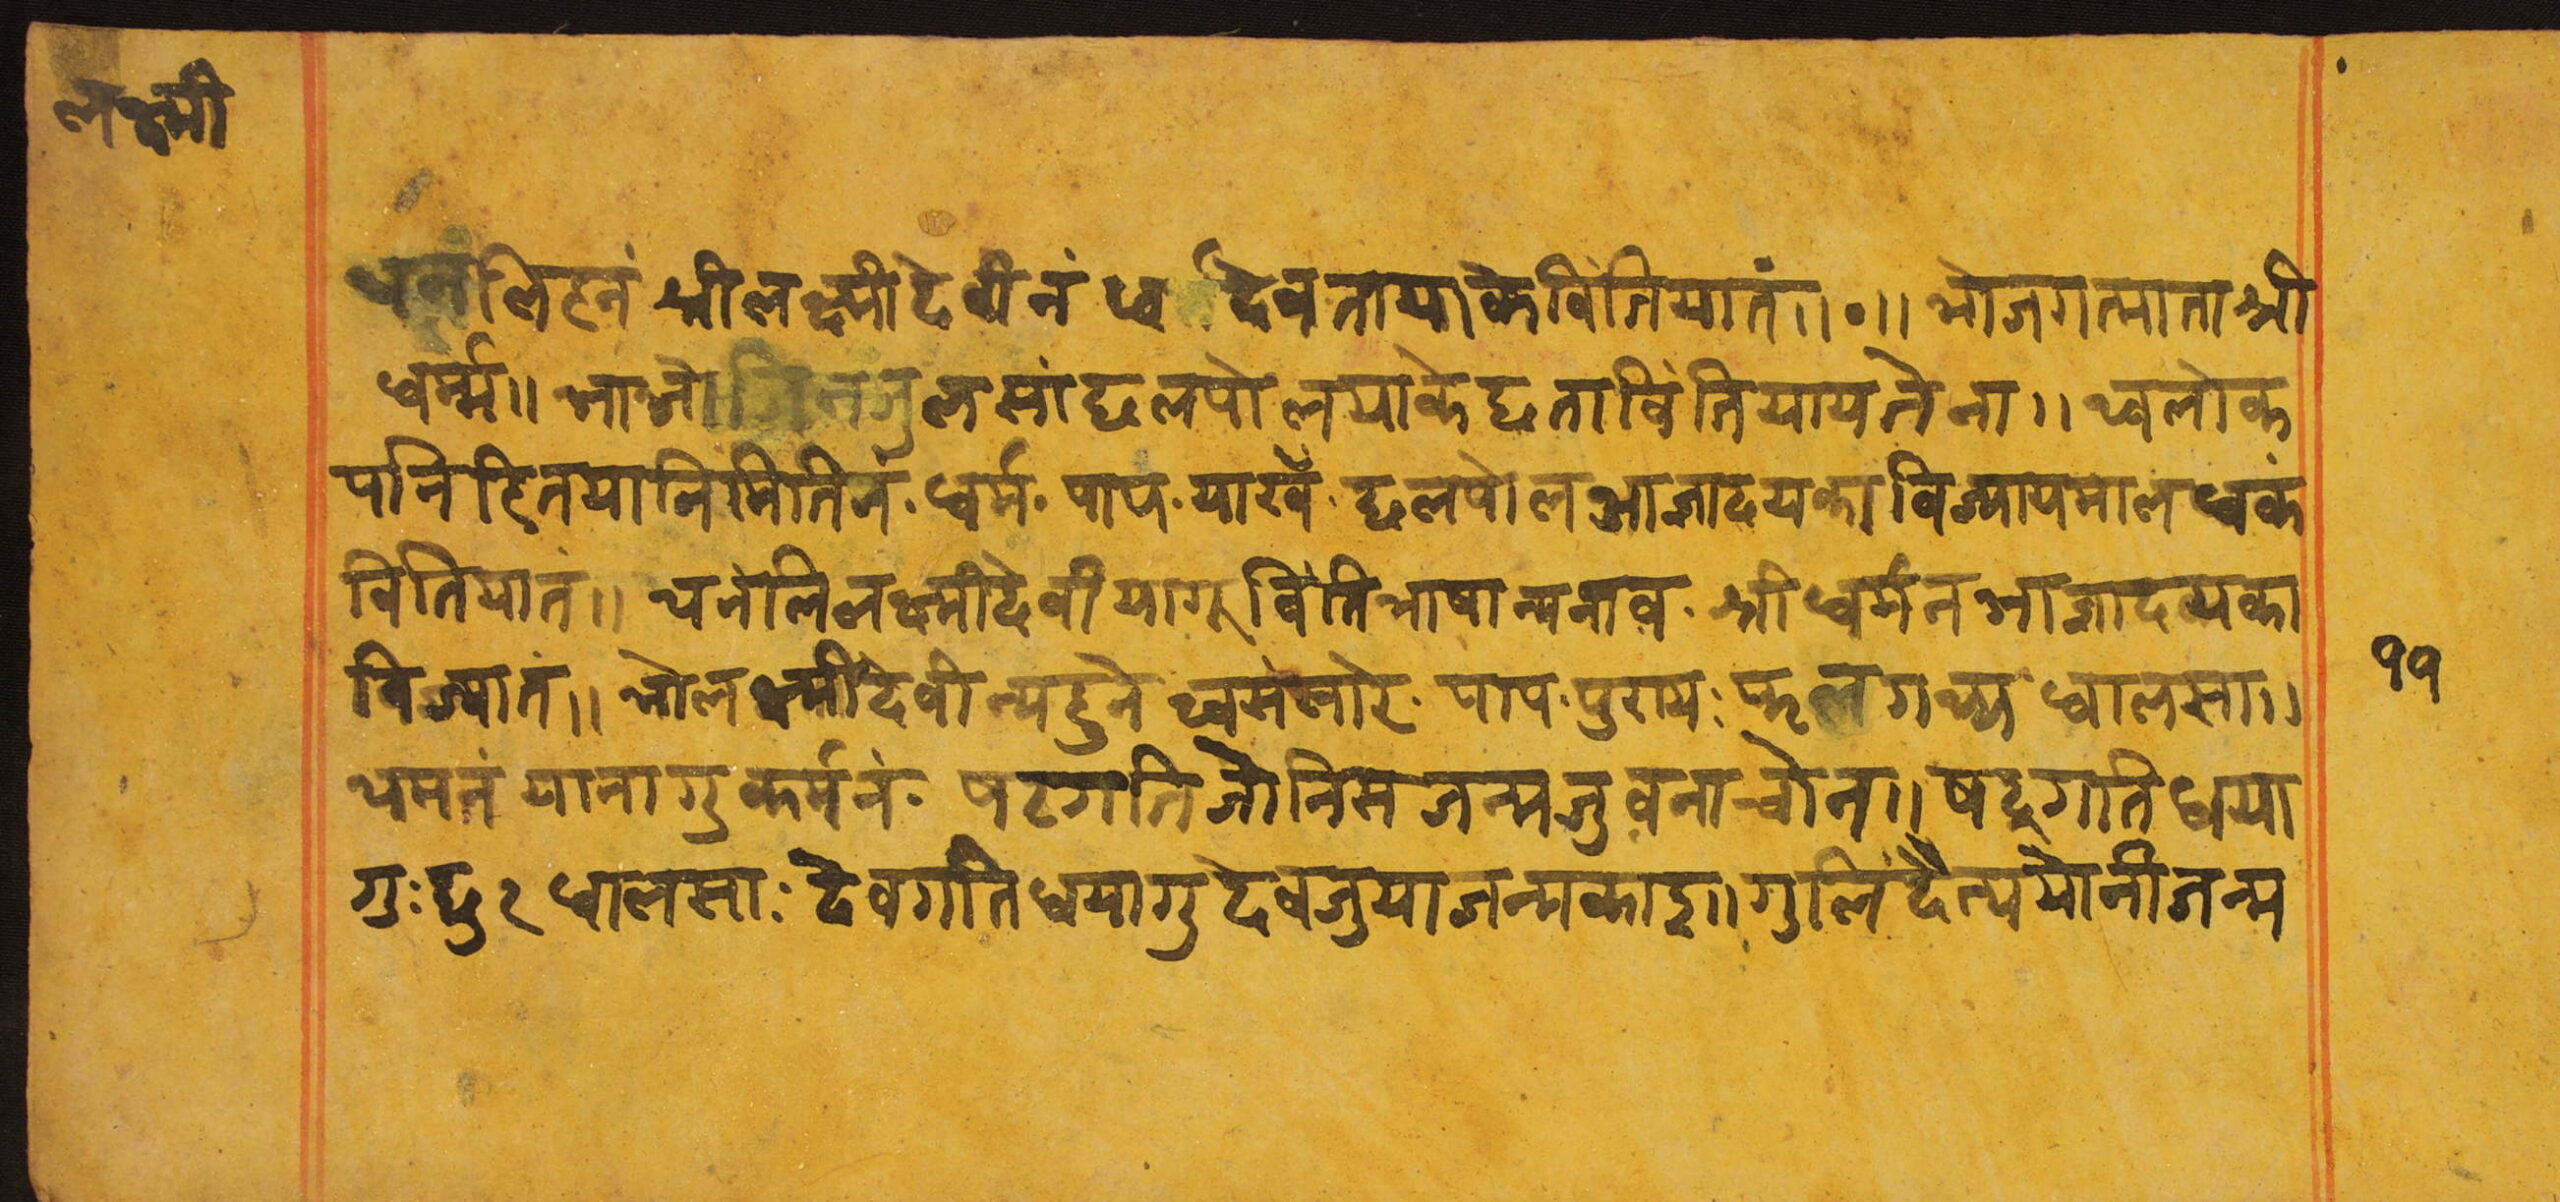 लक्ष्मी
थनंलि हनं श्रीलक्ष्मीदेवीनं ध्व देवतायाके विंतियातं॥०॥ भो जगत्माता श्री
धर्म्म॥ आज्ञा जिनंजुलसां छलपोलयाके छता विंतियायतेना॥ थ्वलोक
पनि हितयानिमितिनं· धर्म· पाप·याखँ· छलपोल आज्ञादयका विज्यायमाल धकं
विंतियातं॥ थनंलि लक्ष्मीदेवीयागू विंतिभाषा न्यनाव· श्रीधर्मन आज्ञादयका
विज्यातं॥ भो लक्ष्मीदेवी न्यहुने थ्वसंसारे· पाप·पुराय: फल गथ्य धालसा॥
थमनं यानागु कर्मनं· षटगति जोनिस जन्मजुवनाचोन॥ षट्गति धया
गु: छु २ धालसा: देवगति धयागु देवजुया जन्मकाइ॥ गुलिं दैत्ययोनी जन्म
११